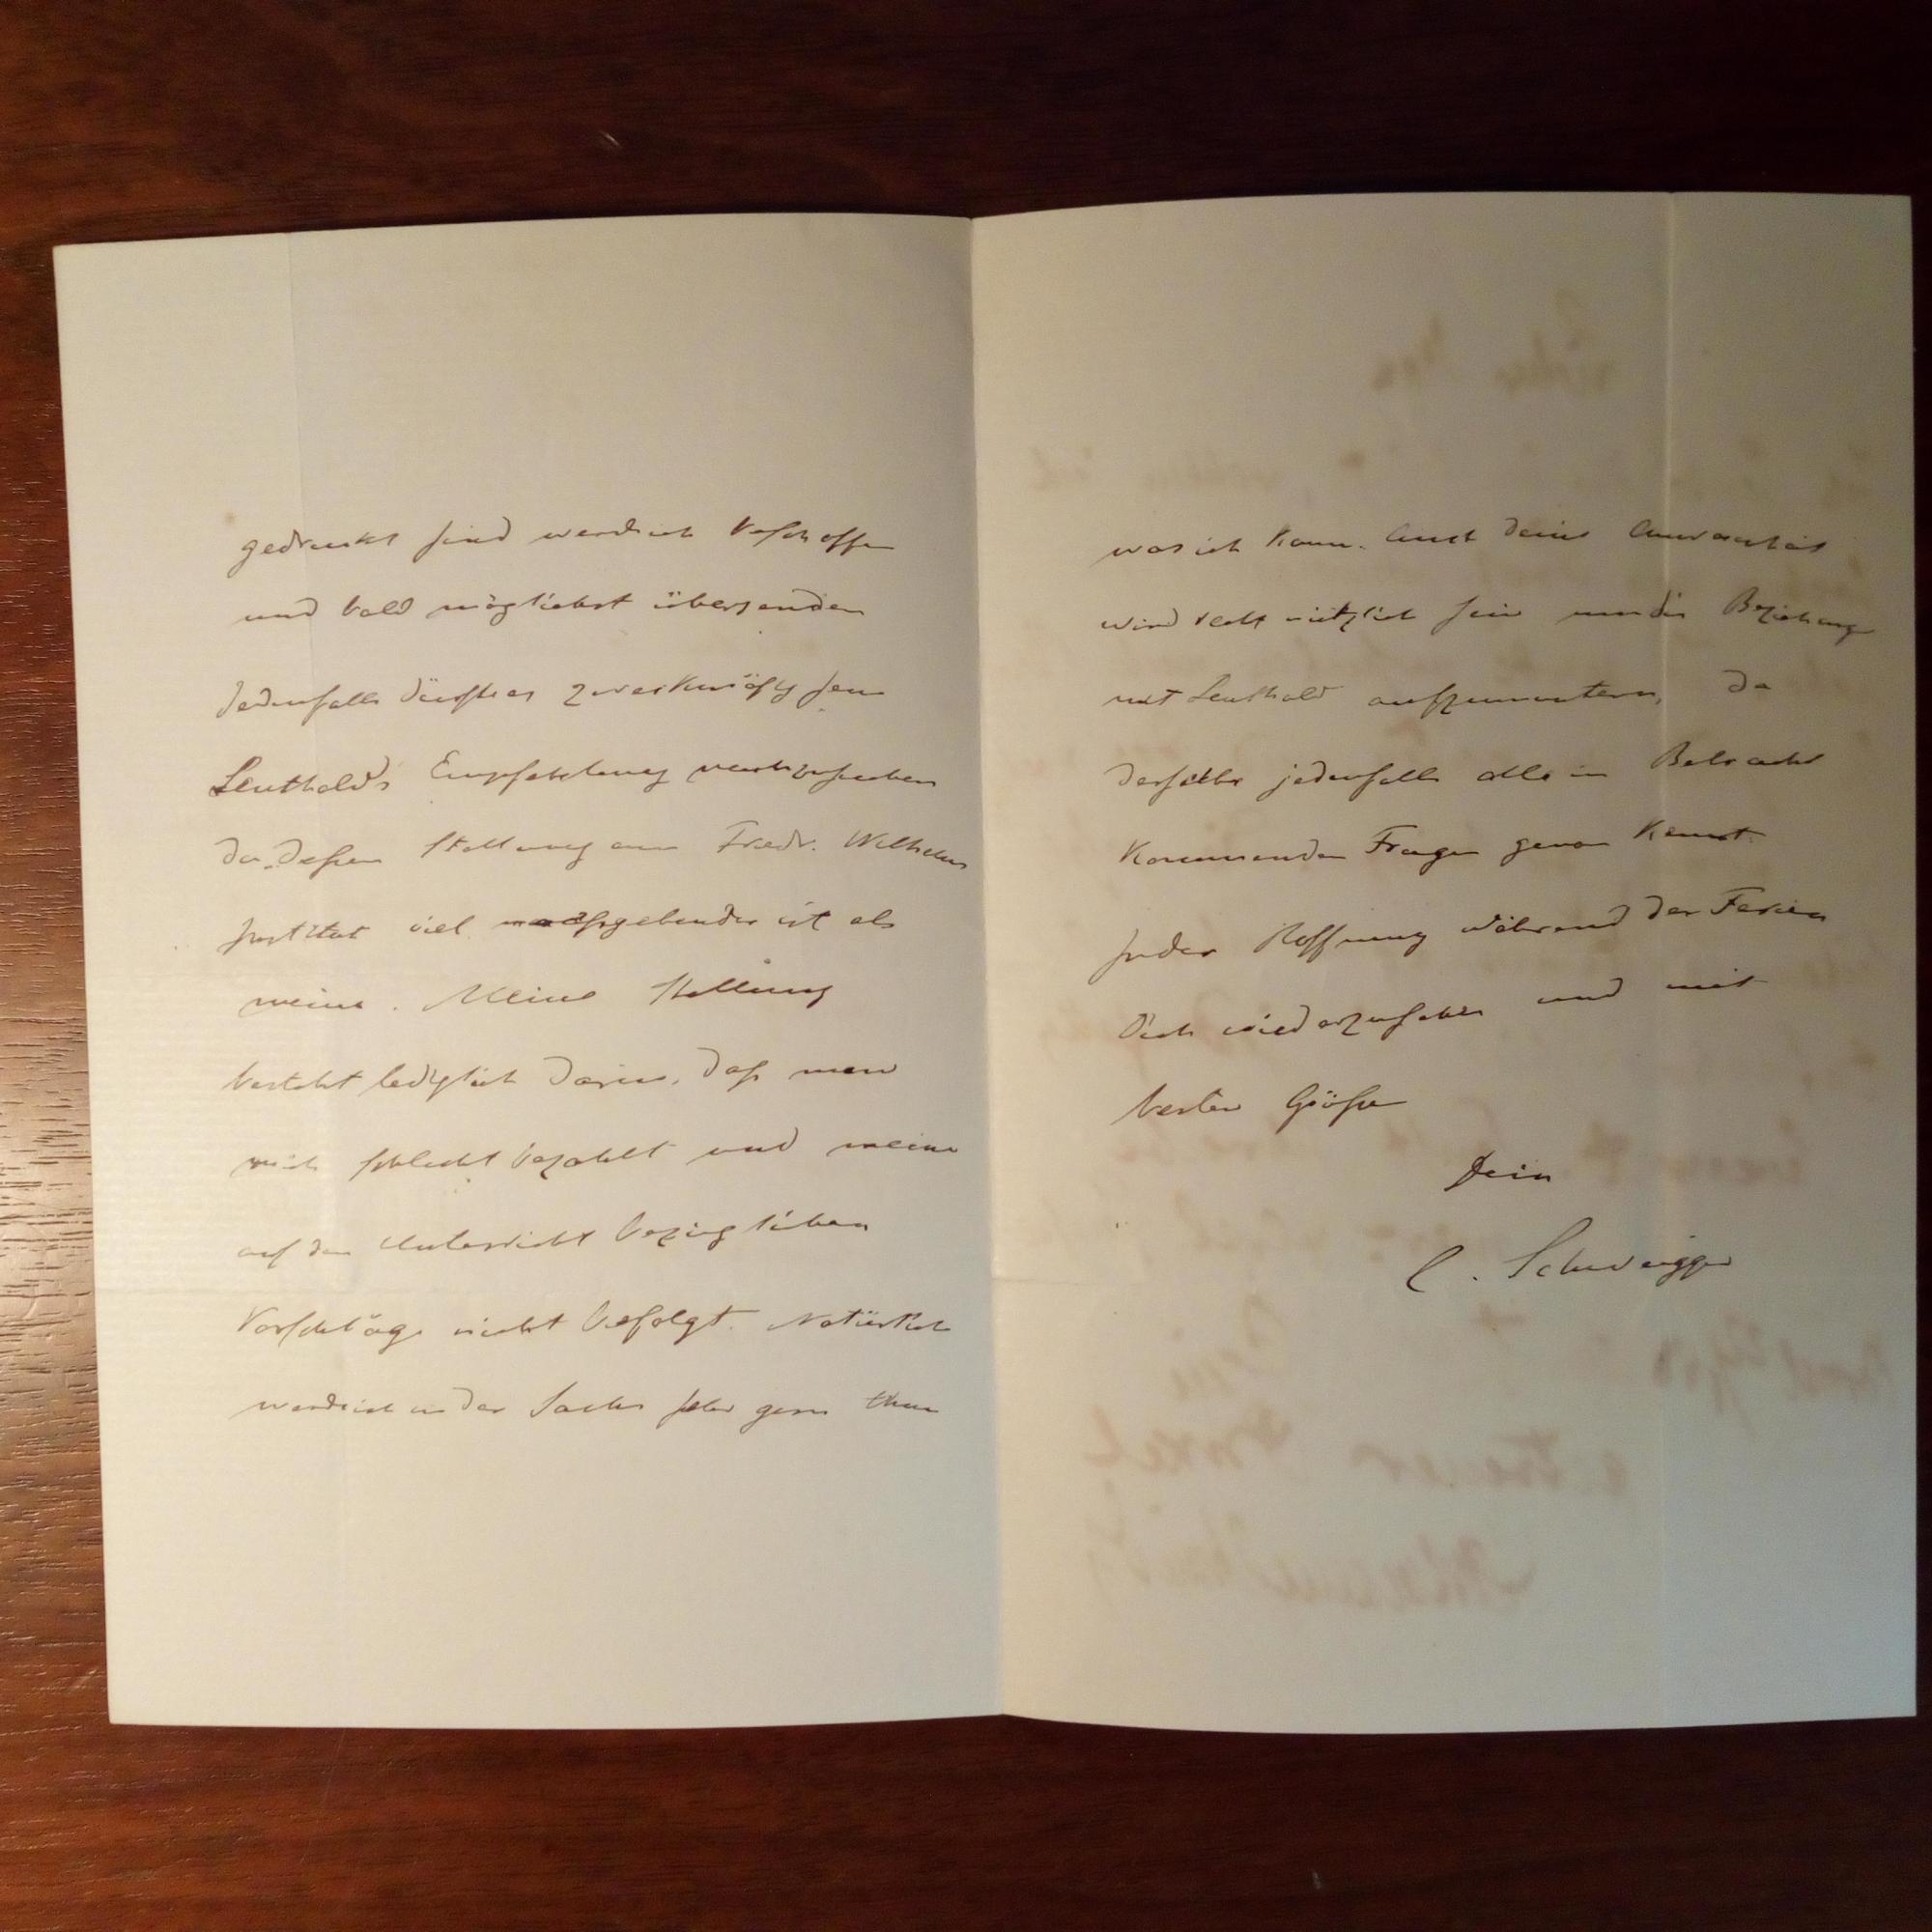 gedruckt sind werde ich beschaffen
und bald möglichst übersenden
Jedenfalls dürfte es zweckmäßig sein
Leuthold's Empfehlung nachzusuchen
da dessen Stellung am Friedr. Wilhelms
Institut viel maaßgebender ist als
meine. Meine Stellung
besteht lediglich darin, daß man
mich schlecht bezahlt und meine
auf den Unterricht bezüglichen
Vorschläge nicht befolgt. Natürlich
werde ich in der Sache sehr gern thun
was ich kann. Auch deine Anwesenheit
wird recht nützlich sein um die Beziehung
mit Leuthold aufzumuntern, da
derselbe jedenfalls alle in Betracht
kommenden Fragen genau kennt.
In der Hoffnung während der Ferien
Dich wiederzusehen und mit
besten Grüßen
Dein
C. Schweigger